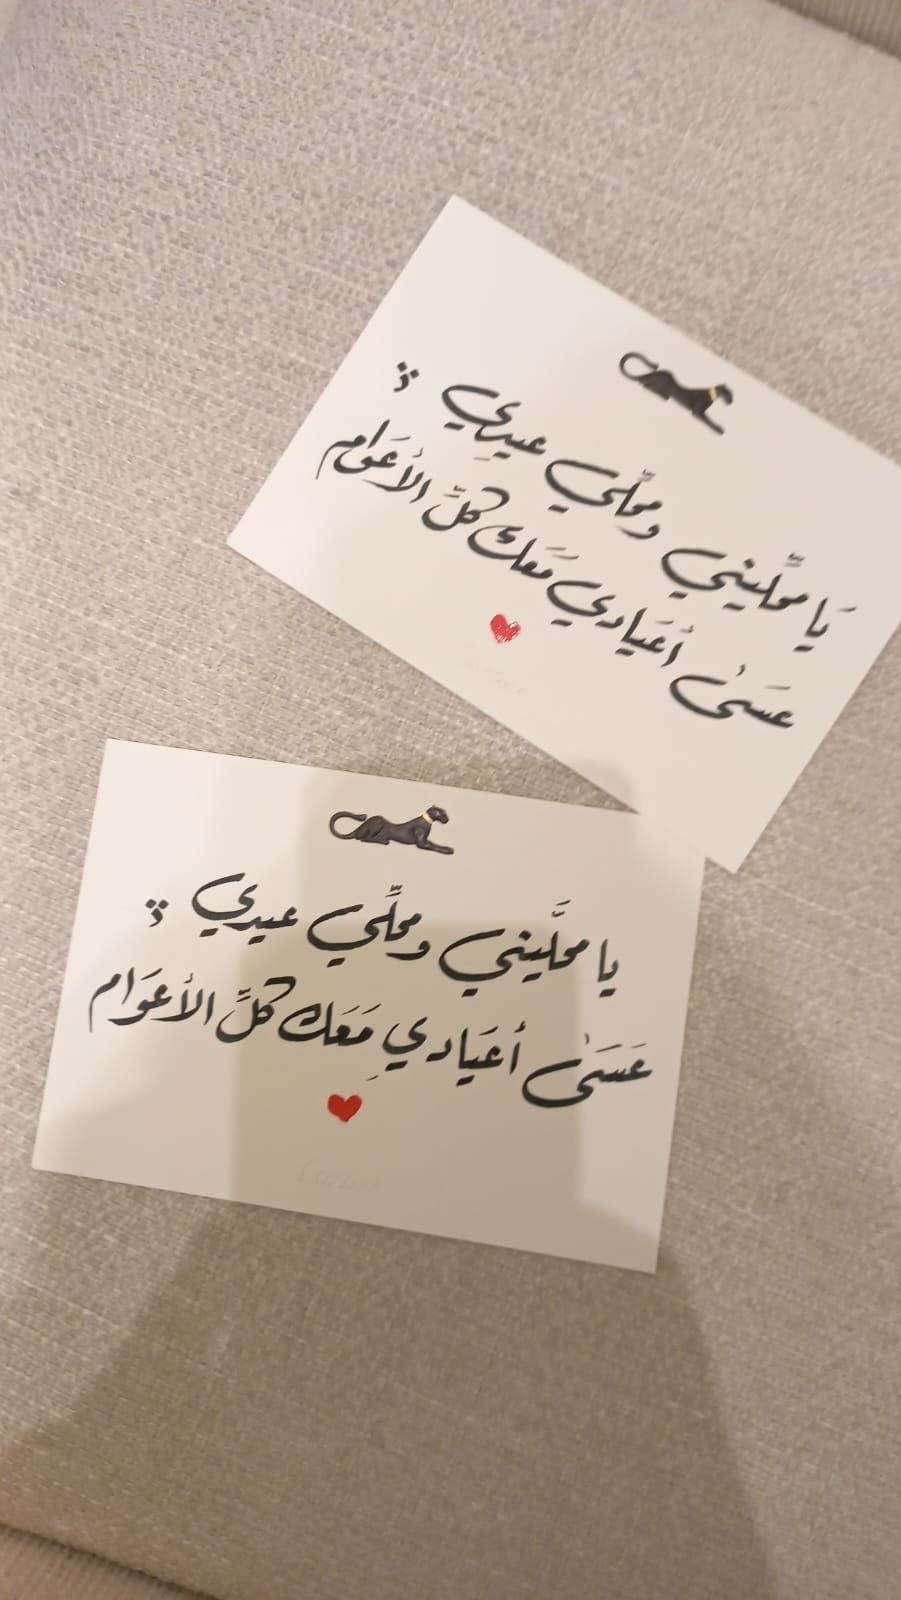 يَا محَّليني ومحلِّي عيدِي ؛
عسَىٰ أعيَادي مَعَك كلَّ الأعوَام
يا محلَّيني ومحلِّي عيدي ؛
عَسَىٰ أعيَاديِ مَعَك كلَّ الأعوَام